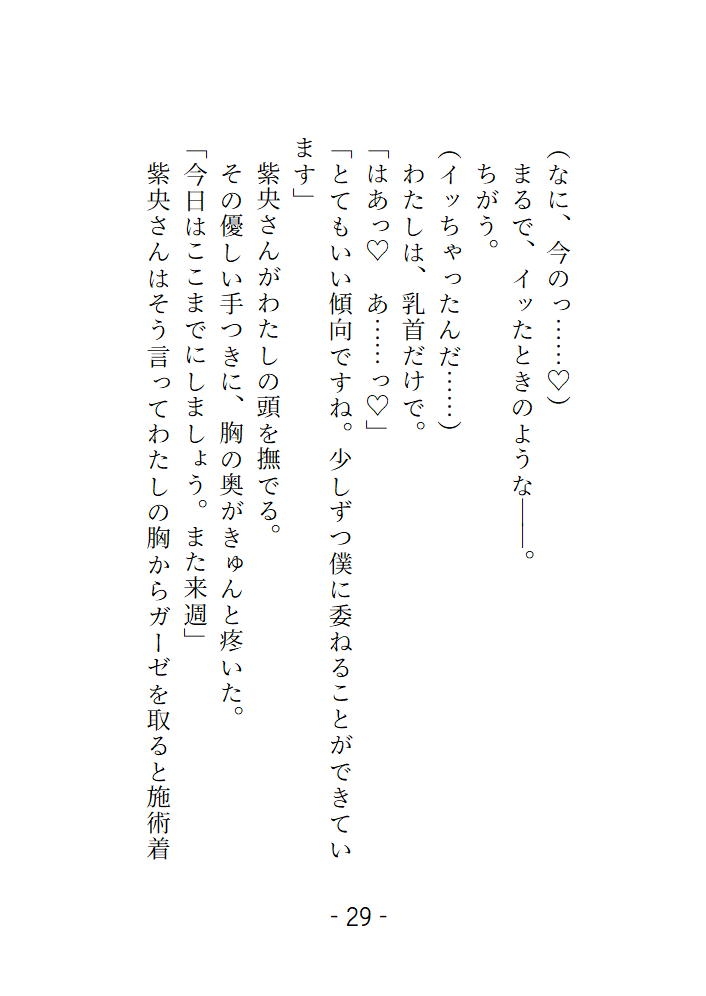 (なに、今のっ……♡)
まるで、イッたときのような――。
ちがう。
(イッちゃったんだ……)
わたしは、乳首だけで。
「はあっ♡　あ……っ♡」
「とてもいい傾向ですね。少しずつ僕に委ねることができてい
ます」
紫央さんがわたしの頭を撫でる。
その優しい手つきに、胸の奥がきゅんと疼いた。
「今日はここまでにしましょう。また来週」
紫央さんはそう言ってわたしの胸からガーゼを取ると施術着
- 29 -